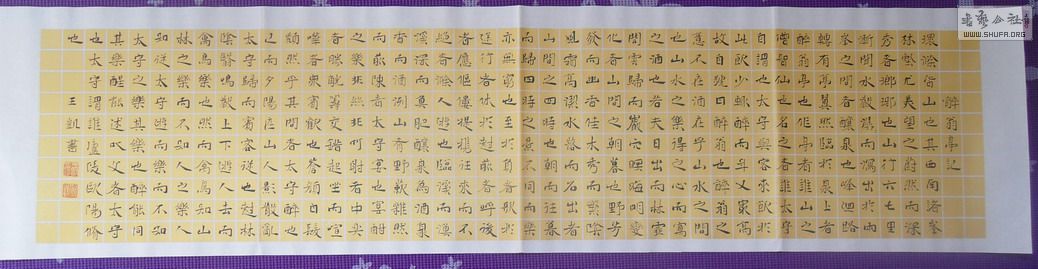 醉翁亭記
環滁皆山也其西南諸峯
林壑尤美望之蔚然而深
秀者瑯琊也山行六七里
漸聞水聲潺潺而瀉出於兩
峯之間者釀泉也峰迴路
轉有亭翼然臨於泉上者
醉翁亭也作亭者誰山之
僧智仙也名之者誰太守
自謂也太守與客來飲於
此飲少輒醉而年又最高
故自號曰醉翁也醉翁之
意不在酒在乎山水之間
也山水之樂得之心而寓
之酒也若夫日出而林霏
開雲歸而巖穴暝晦明變
化者山間之朝暮也野芳
發而幽香佳木秀而繁陰
風霜高潔水落而石出者
山間之四時也朝而往暮
而歸四時之景不同而樂
亦無窮也至於負者歌於
途行者休於樹前者呼後
者應傴僂提攜往來而不
絕者滁人遊也臨溪而漁
溪深而魚肥釀泉為酒泉
香而酒洌山肴野蔌雜然
而前陳者太守宴也宴酣
之樂非絲非竹射者中奕
者勝觥籌交錯起坐而喧
嘩者眾賓歡也蒼顏白髮
頹然乎其間者太守醉也
已而夕陽在山人影散亂
太守歸而賓客從也樹林
陰翳鳴聲上下遊人去而
禽鳥樂也然而禽鳥知山
林之樂而不知人之樂人
知從太守遊而樂而不知
太守之樂其樂也醉能同
其樂醒能述以文者太守
也太守謂誰廬陵歐陽修
也
王凱書
書藝公社
WWW.SHUFA.ORG